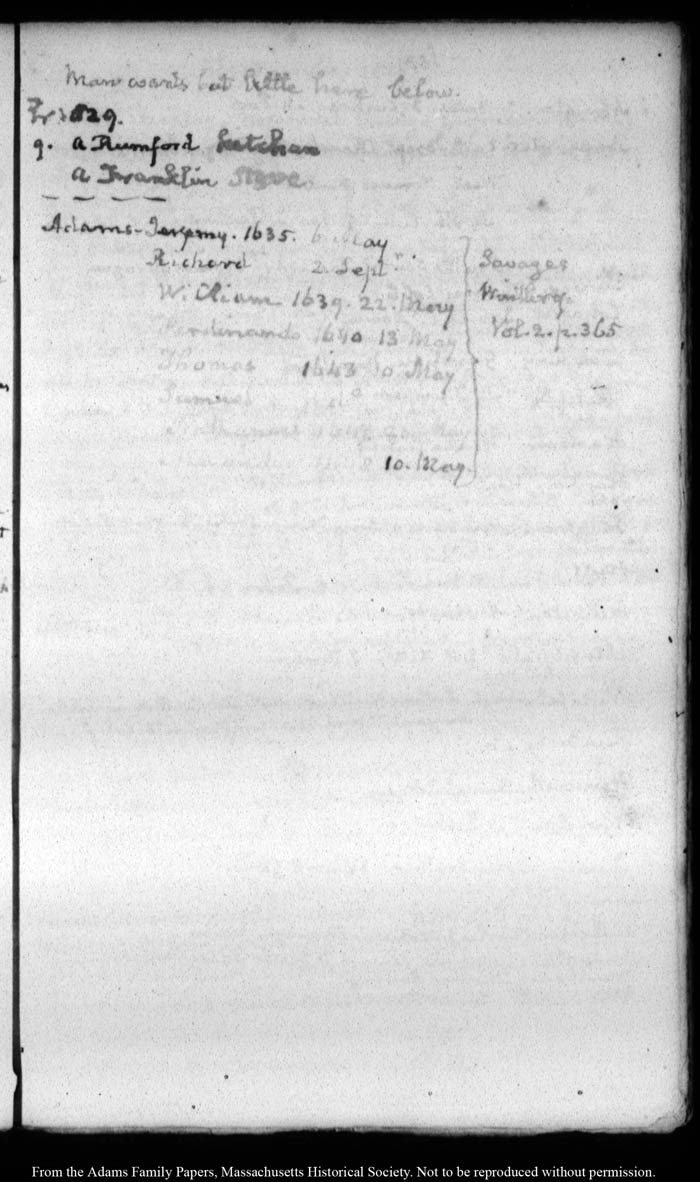 Man wants but little here below.
829.
9. a Rumford Kitchan
a Franklin Stove
Adams-Jeremy. 1635. 6 May
Richard 2 Septr.
William 1639. 22. May
Ferdinando 1640 13 May
Thomas 1643 10. May
Samuel do
10. May.
Savages
Winthrop
Vol. 2. p. 365
From the Adams Family Papers, Massachusetts Historical Society. Not to be reproduced without permission.